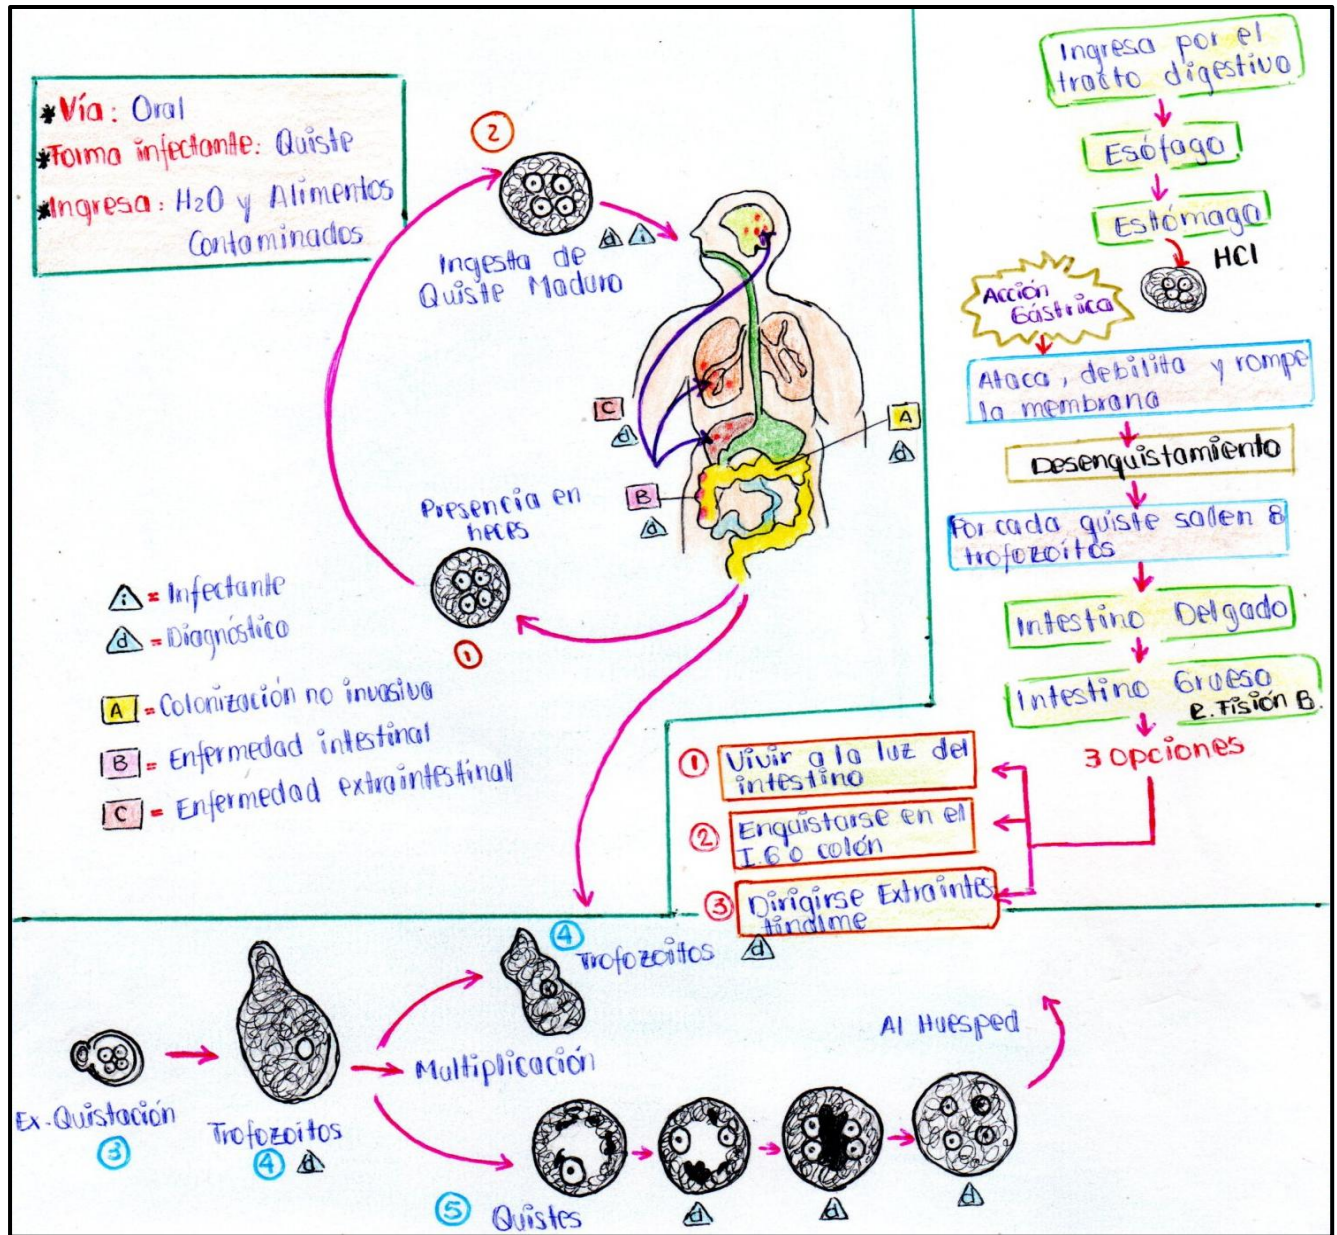 *Vía: Oral
*Forma infectante: Quiste
*Ingresa: H2O y Alimentos
Contaminados
2
Ingesta de
Quiste Maduro
d i
C
d
A
d
B
d
Presencia en
heces
1
i = Infectante
d = Diagnóstico
A = Colonización no invasiva
B = Enfermedad intestinal
C = Enfermedad extraintestinall
Ingresa por el
tracto digestivo
Esófago
Estómago
HCl
Acción
Gástrica
Ataca, debilita y rompe
la membrana
Desenquistamiento
Por cada quiste salen 8
trofozoitos
Intestino Delgado
Intestino Grueso
R. Fisión B.
3 Opciones
1 Vivir a la luz del
intestino
2 Enquistarse en el
I.G o colón
3 Dirigirse Extraintes
tinalme
Ex-Quistación
3
Trofozoitos
4 d
4
Trofozoitos d
Multiplicación
5 Quistes
d
d
d
Al Huesped